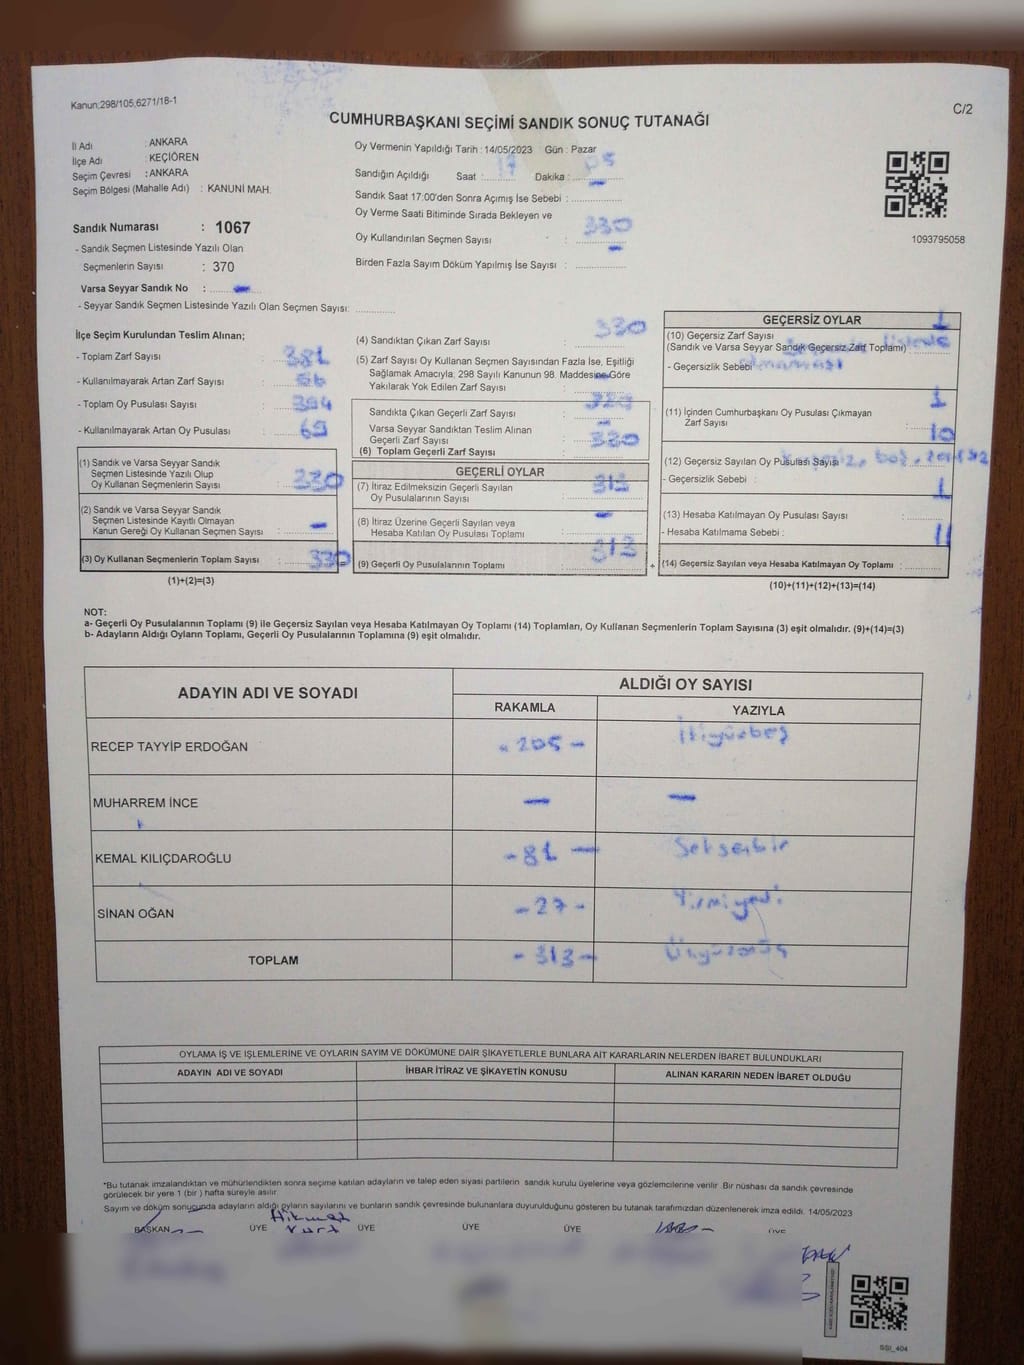 Kanun;298/105,6271/18-1
C/2
CUMHURBAŞKANI SEÇİMİ SANDIK SONUÇ TUTANAĞI
İl Adı : ANKARA
İlçe Adı : KEÇİÖREN
Seçim Çevresi : ANKARA
Seçim Bölgesi (Mahalle Adı) : KANUNİ MAH.
Sandık Numarası : 1067
- Sandık Seçmen Listesinde Yazılı Olan
Seçmenlerin Sayısı : 370
Varsa Seyyar Sandık No : -
- Seyyar Sandık Seçmen Listesinde Yazılı Olan Seçmen Sayısı: ..............
Oy Vermenin Yapıldığı Tarih : 14/05/2023 Gün : Pazar
Sandığın Açıldığı Saat : 17 Dakika : 05
Sandık Saat 17:00'den Sonra Açımış İse Sebebi : -
Oy Verme Saati Bitiminde Sırada Bekleyen ve
Oy Kullandırılan Seçmen Sayısı : 330
Birden Fazla Sayım Döküm Yapılmış İse Sayısı : -
1093795058
İlçe Seçim Kurulundan Teslim Alınan;
- Toplam Zarf Sayısı : 381
- Kullanılmayarak Artan Zarf Sayısı :
- Toplam Oy Pusulası Sayısı : 394
- Kullanılmayarak Artan Oy Pusulası :
(1) Sandık ve Varsa Seyyar Sandık
Seçmen Listesinde Yazılı Olup
Oy Kullanan Seçmenlerin Sayısı : 330
(2) Sandık ve Varsa Seyyar Sandık
Seçmen Listesinde Kayıtlı Olmayan
Kanun Gereği Oy Kullanan Seçmen Sayısı : -
(3) Oy Kullanan Seçmenlerin Toplam Sayısı : 330
(1)+(2)=(3)
(4) Sandıktan Çıkan Zarf Sayısı : 330
(5) Zarf Sayısı Oy Kullanan Seçmen Sayısından Fazla İse, Eşitliği
Sağlamak Amacıyla; 298 Sayılı Kanunun 98. Maddesine Göre
Yakılarak Yok Edilen Zarf Sayısı : -
Sandıkta Çıkan Geçerli Zarf Sayısı :
Varsa Seyyar Sandıktan Teslim Alınan
Geçerli Zarf Sayısı : -
(6) Toplam Geçerli Zarf Sayısı : 330
GEÇERLİ OYLAR
(7) İtiraz Edilmeksizin Geçerli Sayılan
Oy Pusulalarının Sayısı : 313
(8) İtiraz Üzerine Geçerli Sayılan veya
Hesaba Katılan Oy Pusulası Toplamı : -
(9) Geçerli Oy Pusulalarının Toplamı : 313
+
GEÇERSİZ OYLAR
(10) Geçersiz Zarf Sayısı 1
(Sandık ve Varsa Seyyar Sandık Geçersiz Zarf Toplamı)
- Geçersizlik Sebebi : olmaması
(11) İçinden Cumhurbaşkanı Oy Pusulası Çıkmayan
Zarf Sayısı 1
(12) Geçersiz Sayılan Oy Pusulası Sayısı 10
- Geçersizlik Sebebi : boş,
(13) Hesaba Katılmayan Oy Pusulası Sayısı : 1
- Hesaba Katılmama Sebebi :
(14) Geçersiz Sayılan veya Hesaba Katılmayan Oy Toplamı : 11
(10)+(11)+(12)+(13)=(14)
NOT:
a- Geçerli Oy Pusulalarının Toplamı (9) ile Geçersiz Sayılan veya Hesaba Katılmayan Oy Toplamı (14) Toplamları, Oy Kullanan Seçmenlerin Toplam Sayısına (3) eşit olmalıdır. (9)+(14)=(3)
b- Adayların Aldığı Oyların Toplamı, Geçerli Oy Pusulalarının Toplamına (9) eşit olmalıdır.
ADAYIN ADI VE SOYADI ALDIĞI OY SAYISI
RAKAMLA YAZIYLA
RECEP TAYYİP ERDOĞAN - 205 - İkiyüzbeş
MUHARREM İNCE - -
KEMAL KILIÇDAROĞLU - 81 - Seksenbir
SİNAN OĞAN - 27 - Yirmiyedi
TOPLAM - 313 - Üçyüzonüç
OYLAMA İŞ VE İŞLEMLERİNE VE OYLARIN SAYIM VE DÖKÜMÜNE DAİR ŞİKAYETLERLE BUNLARA AİT KARARLARIN NELERDEN İBARET BULUNDUKLARI
ADAYIN ADI VE SOYADI İHBAR İTİRAZ VE ŞİKAYETİN KONUSU ALINAN KARARIN NEDEN İBARET OLDUĞU
*Bu tutanak imzalandıktan ve mühürlendikten sonra seçime katılan adayların ve talep eden siyasi partilerin sandık kurulu üyelerine veya gözlemcilerine verilir. Bir nüshası da sandık çevresinde
görülecek bir yere 1 (bir ) hafta süreyle asılır.
Sayım ve döküm sonucunda adayların aldığı oyların sayılarını ve bunların sandık çevresinde bulunanlara duyurulduğunu gösteren bu tutanak tarafımızdan düzenlenerek imza edildi. 14/05/2023
BAŞKAN ÜYE Hikmet ÜYE ÜYE ÜYE ÜYE
SSI_404